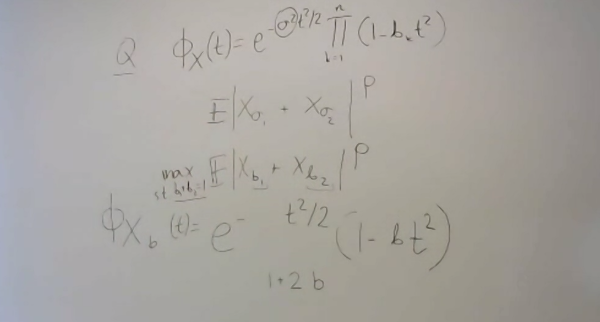 Q ϕ_X(t) = e^{-σ²t²/2} ∏_{k=1}^{n} (1 - b_k t²)
E|X_{σ_1} + X_{σ_2}|^p
max st b_1+b_2=1 E|X_{b_1} + X_{b_2}|^p
ϕ_{X_b}(t) = e^{- t²/2} (1 - bt²)
1+2b